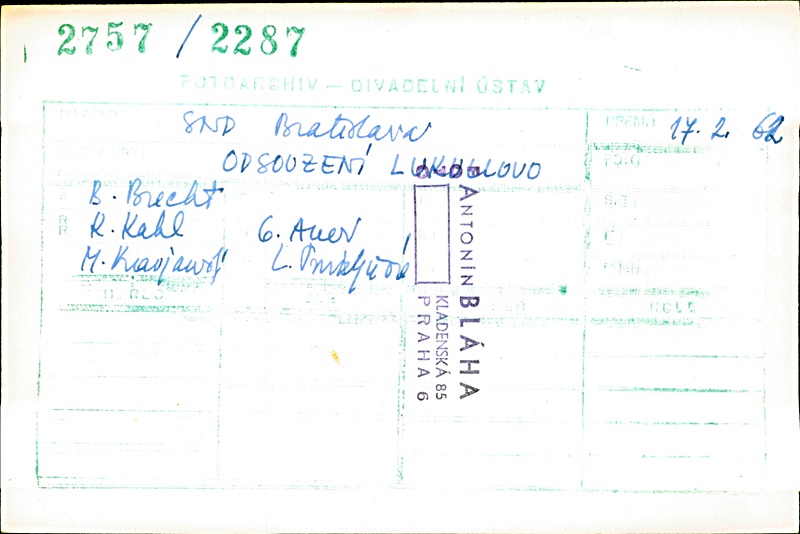 2757 / 2287
FOTOARCHIV — DIVADELNÍ ÚSTAV
SND Bratislava
17. 2. 62
ODSOUZENÍ LUKULLOVO
B. Brecht
R. Kahl G. Auer
M. L.
ANTONÍN BLÁHA
KLADENSKÁ 85
PRAHA 6